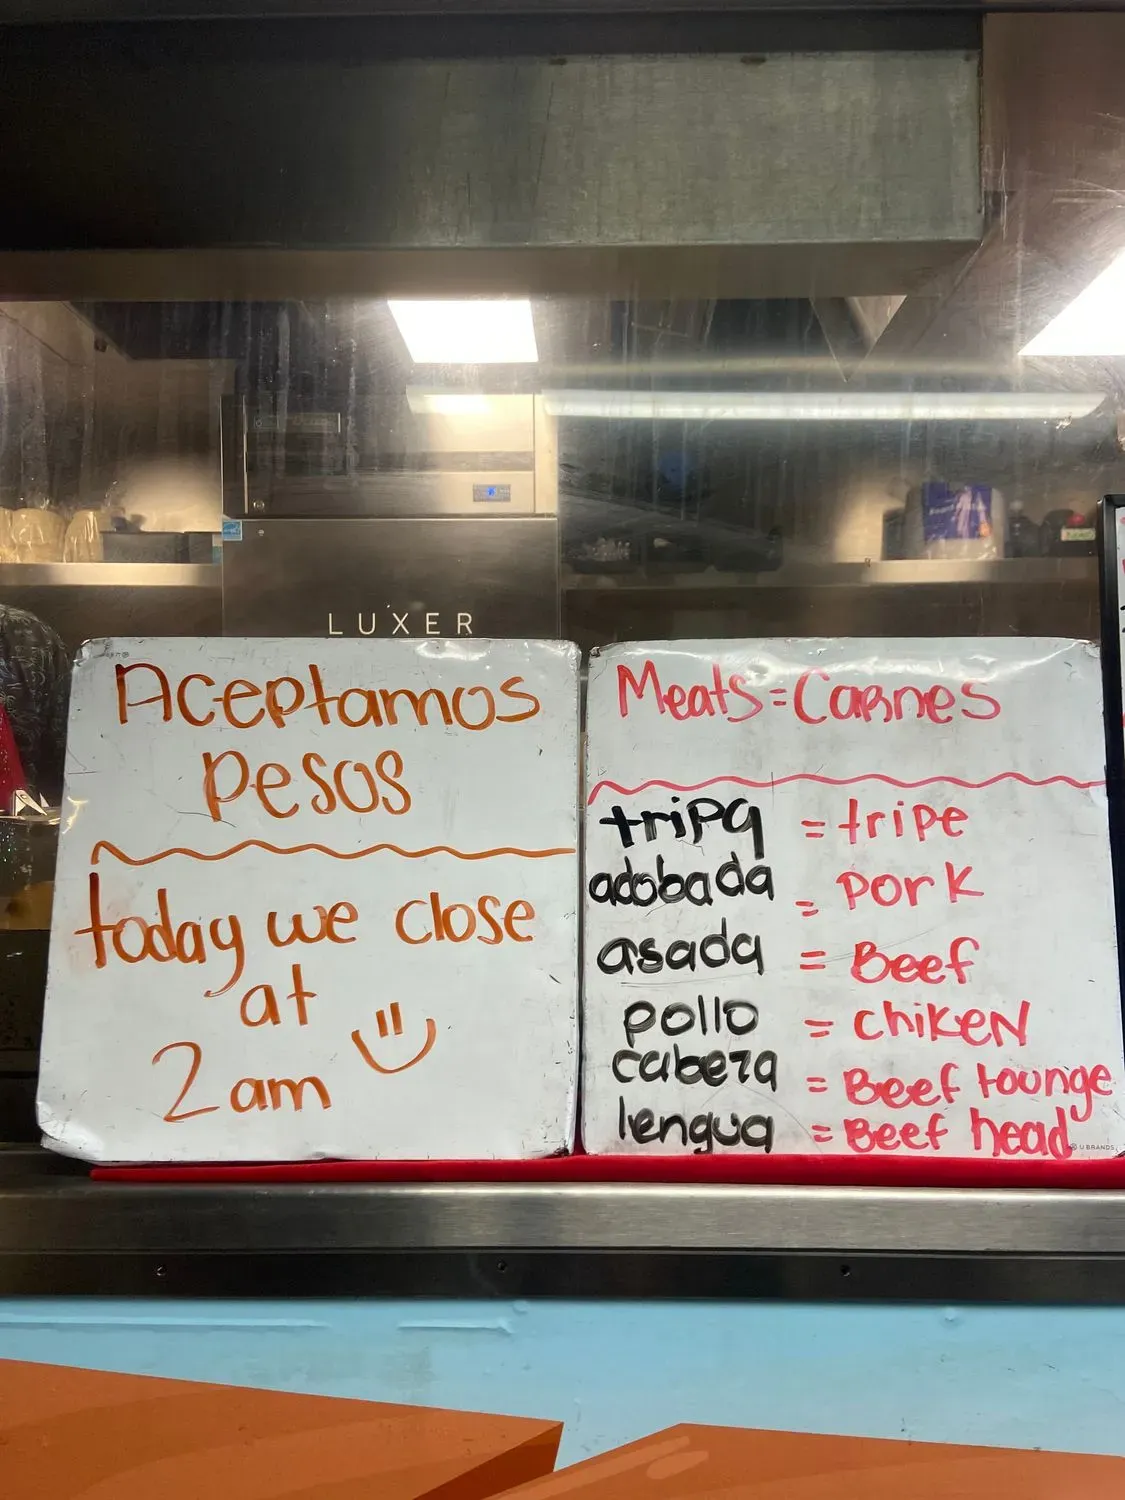 LUXER
Aceptamos
pesos
today we close
at
2 am
Meats = Carnes
tripa = tripe
adobada = pork
asada = Beef
pollo = chiken
cabeza = Beef tounge
lengua = Beef head
U BRANDS